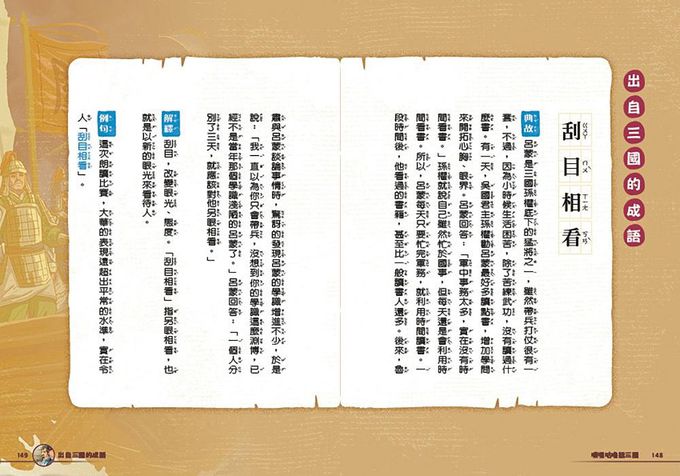 出自三國的成語
刮目相看
ㄍㄨㄚ ㄇㄨˋ ㄒㄧㄤ ㄎㄢˋ
典故 呂蒙是三國孫權底下的猛將之一，雖然帶兵打仗很有一
套，不過，因為小時候生活困苦，除了苦練武功，沒有讀過什
麼書。有一天，吳國君主孫權勸呂蒙最好多讀點書，增加學問
來開拓心胸、眼界。呂蒙回答：「軍中事務太多，實在沒有時
間看書。」孫權就說自己雖然忙於國事，但每天還是會利用時
間看書。所以，呂蒙每天只要忙完軍務，就利用時間讀書。一
段時間後，他看過的書籍，甚至比一般讀書人還多。後來，魯
肅與呂蒙談論事情時，驚訝的發現呂蒙的學識增進不少，於是
說：「我一直以為你只會帶兵，沒想到你的學識這麼淵博，已
經不是當年那個學識淺陋的呂蒙了。」呂蒙回答：「一個人分
別了三天，就應該對他另眼相看。」
解釋 刮目，改變眼光、態度。「刮目相看」指另眼相看，也
就是以新的眼光來看待人。
例句 這次朗讀比賽，大華的表現遠超出平常的水準，實在令
人「刮目相看」。
149 出自三國的成語
嘰哩咕嚕說三國 148